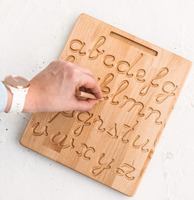 a b c d e f g
l m n
p q r s t
u v w x y z